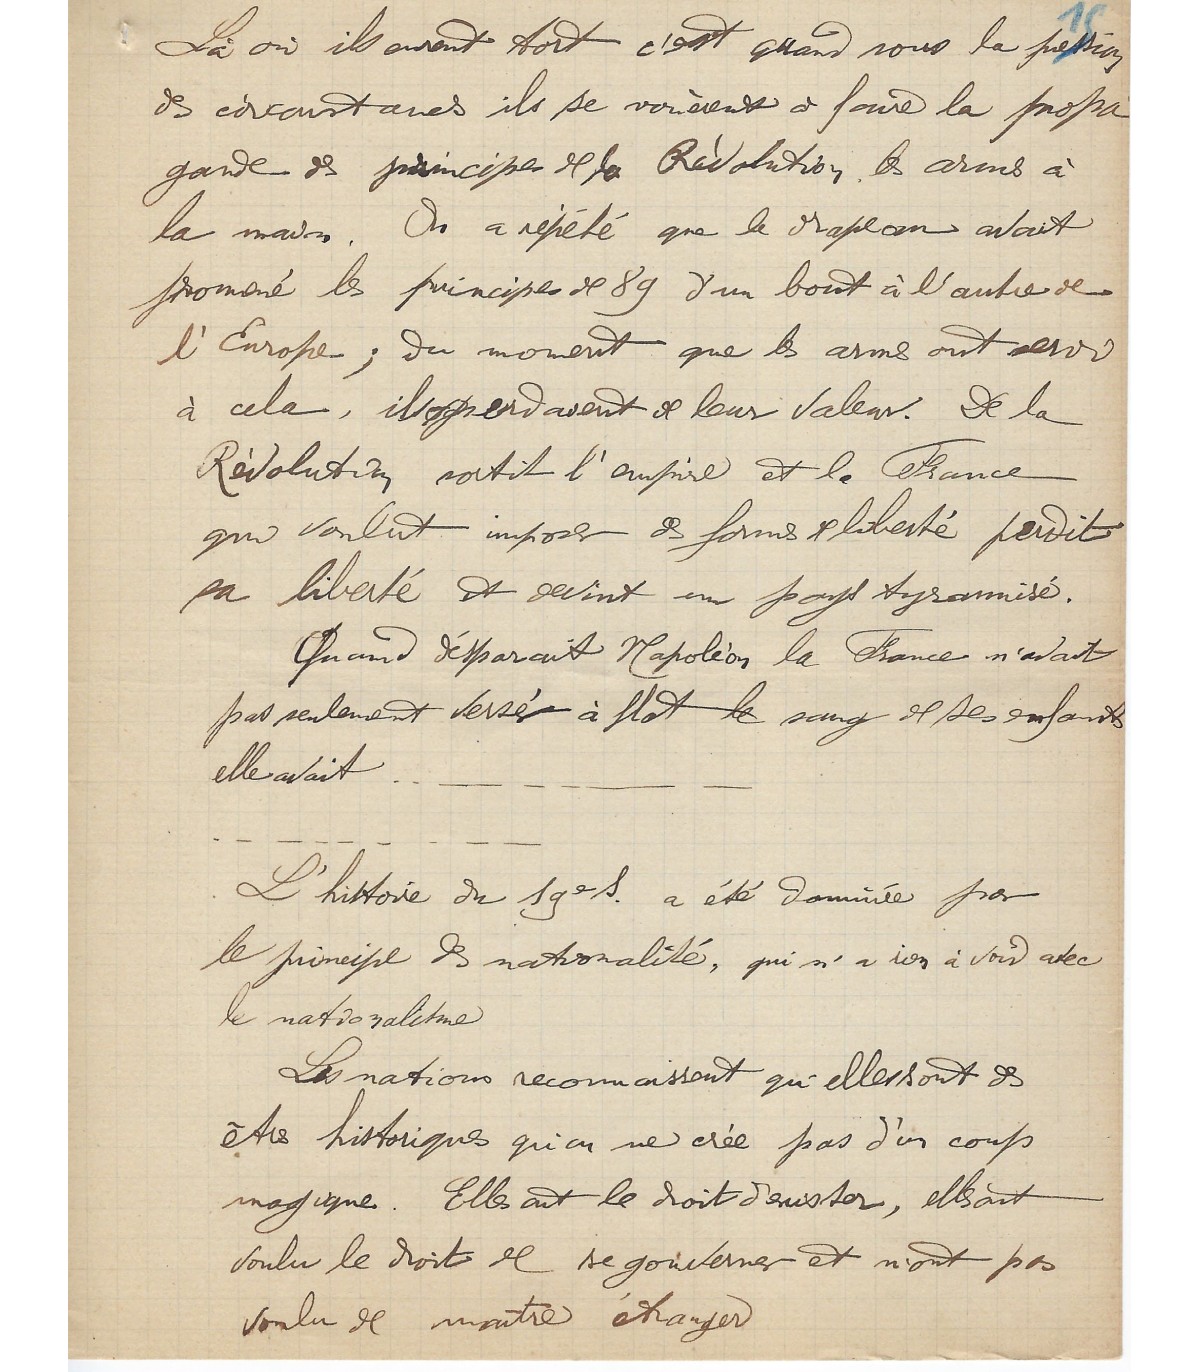 15
Là où ils eurent tort c'est quand sous la pression
des circonstances ils se vouèrent à faire la propa
gande des principes de la Révolution, les armes à
la main. On a répété que le drapeau avait
promené les principes de 89 d'un bout à l'autre de
l'Europe ; du moment que les armes ont servi
à cela, ils perdaient de leur valeur. De la
Révolution sortit l'empire et la France
qui voulut imposer des formes de liberté perdit
sa liberté et devint un pays tyrannisé.
Quand disparait Napoléon la France n'avait
pas seulement versé à flot le sang de ses enfants
elle avait
L'histoire du 19e s. a été dominée par
le principe des nationalité, qui n'a rien à voir avec
le nationalisme
Les nations reconnaissent qu'elles sont des
êtres historiques qu'on ne crée pas d'un coup
magique. Elles ont le droit d'exister, elles ont
voulu le droit de se gouverner et n'ont pas
voulu de maître étranger